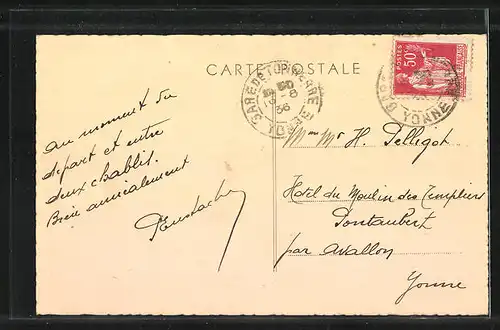 CARTE POSTALE
GARE DE TONNERRE
YONNE
36
POSTES
50c
YONNE
au moment du
départ et entre
deux chablis.
Bien amicalement
Eustache
Mme Mr H. Pelligot
Hôtel du Moulin des Templiers
Pontaubert
par Avallon
Yonne